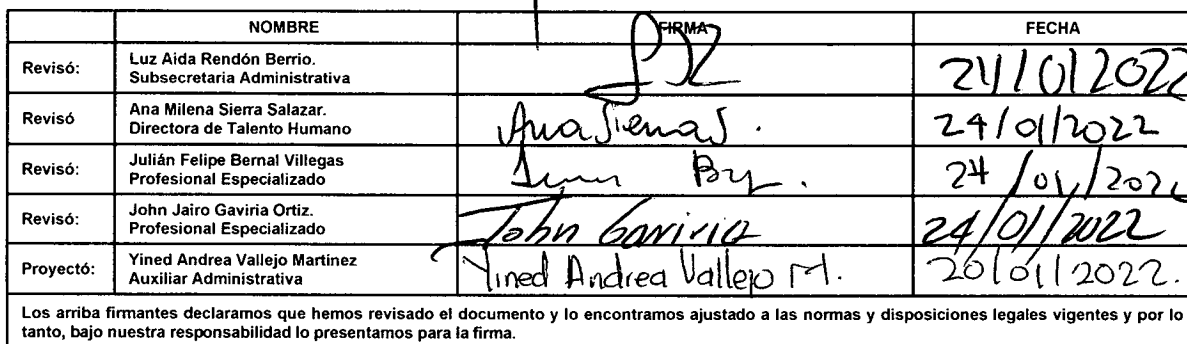 NOMBRE FIRMA FECHA
Revisó: Luz Aida Rendón Berrio.
Subsecretaria Administrativa
24/01/2022
Revisó Ana Milena Sierra Salazar.
Directora de Talento Humano
Ana Sierra S. 24/01/2022
Revisó: Julián Felipe Bernal Villegas
Profesional Especializado
24/01/2022
Revisó: John Jairo Gaviria Ortiz.
Profesional Especializado
John Gaviria 24/01/2022
Proyectó: Yined Andrea Vallejo Martínez
Auxiliar Administrativa
Yined Andrea Vallejo M. 20/01/2022.
Los arriba firmantes declaramos que hemos revisado el documento y lo encontramos ajustado a las normas y disposiciones legales vigentes y por lo
tanto, bajo nuestra responsabilidad lo presentamos para la firma.